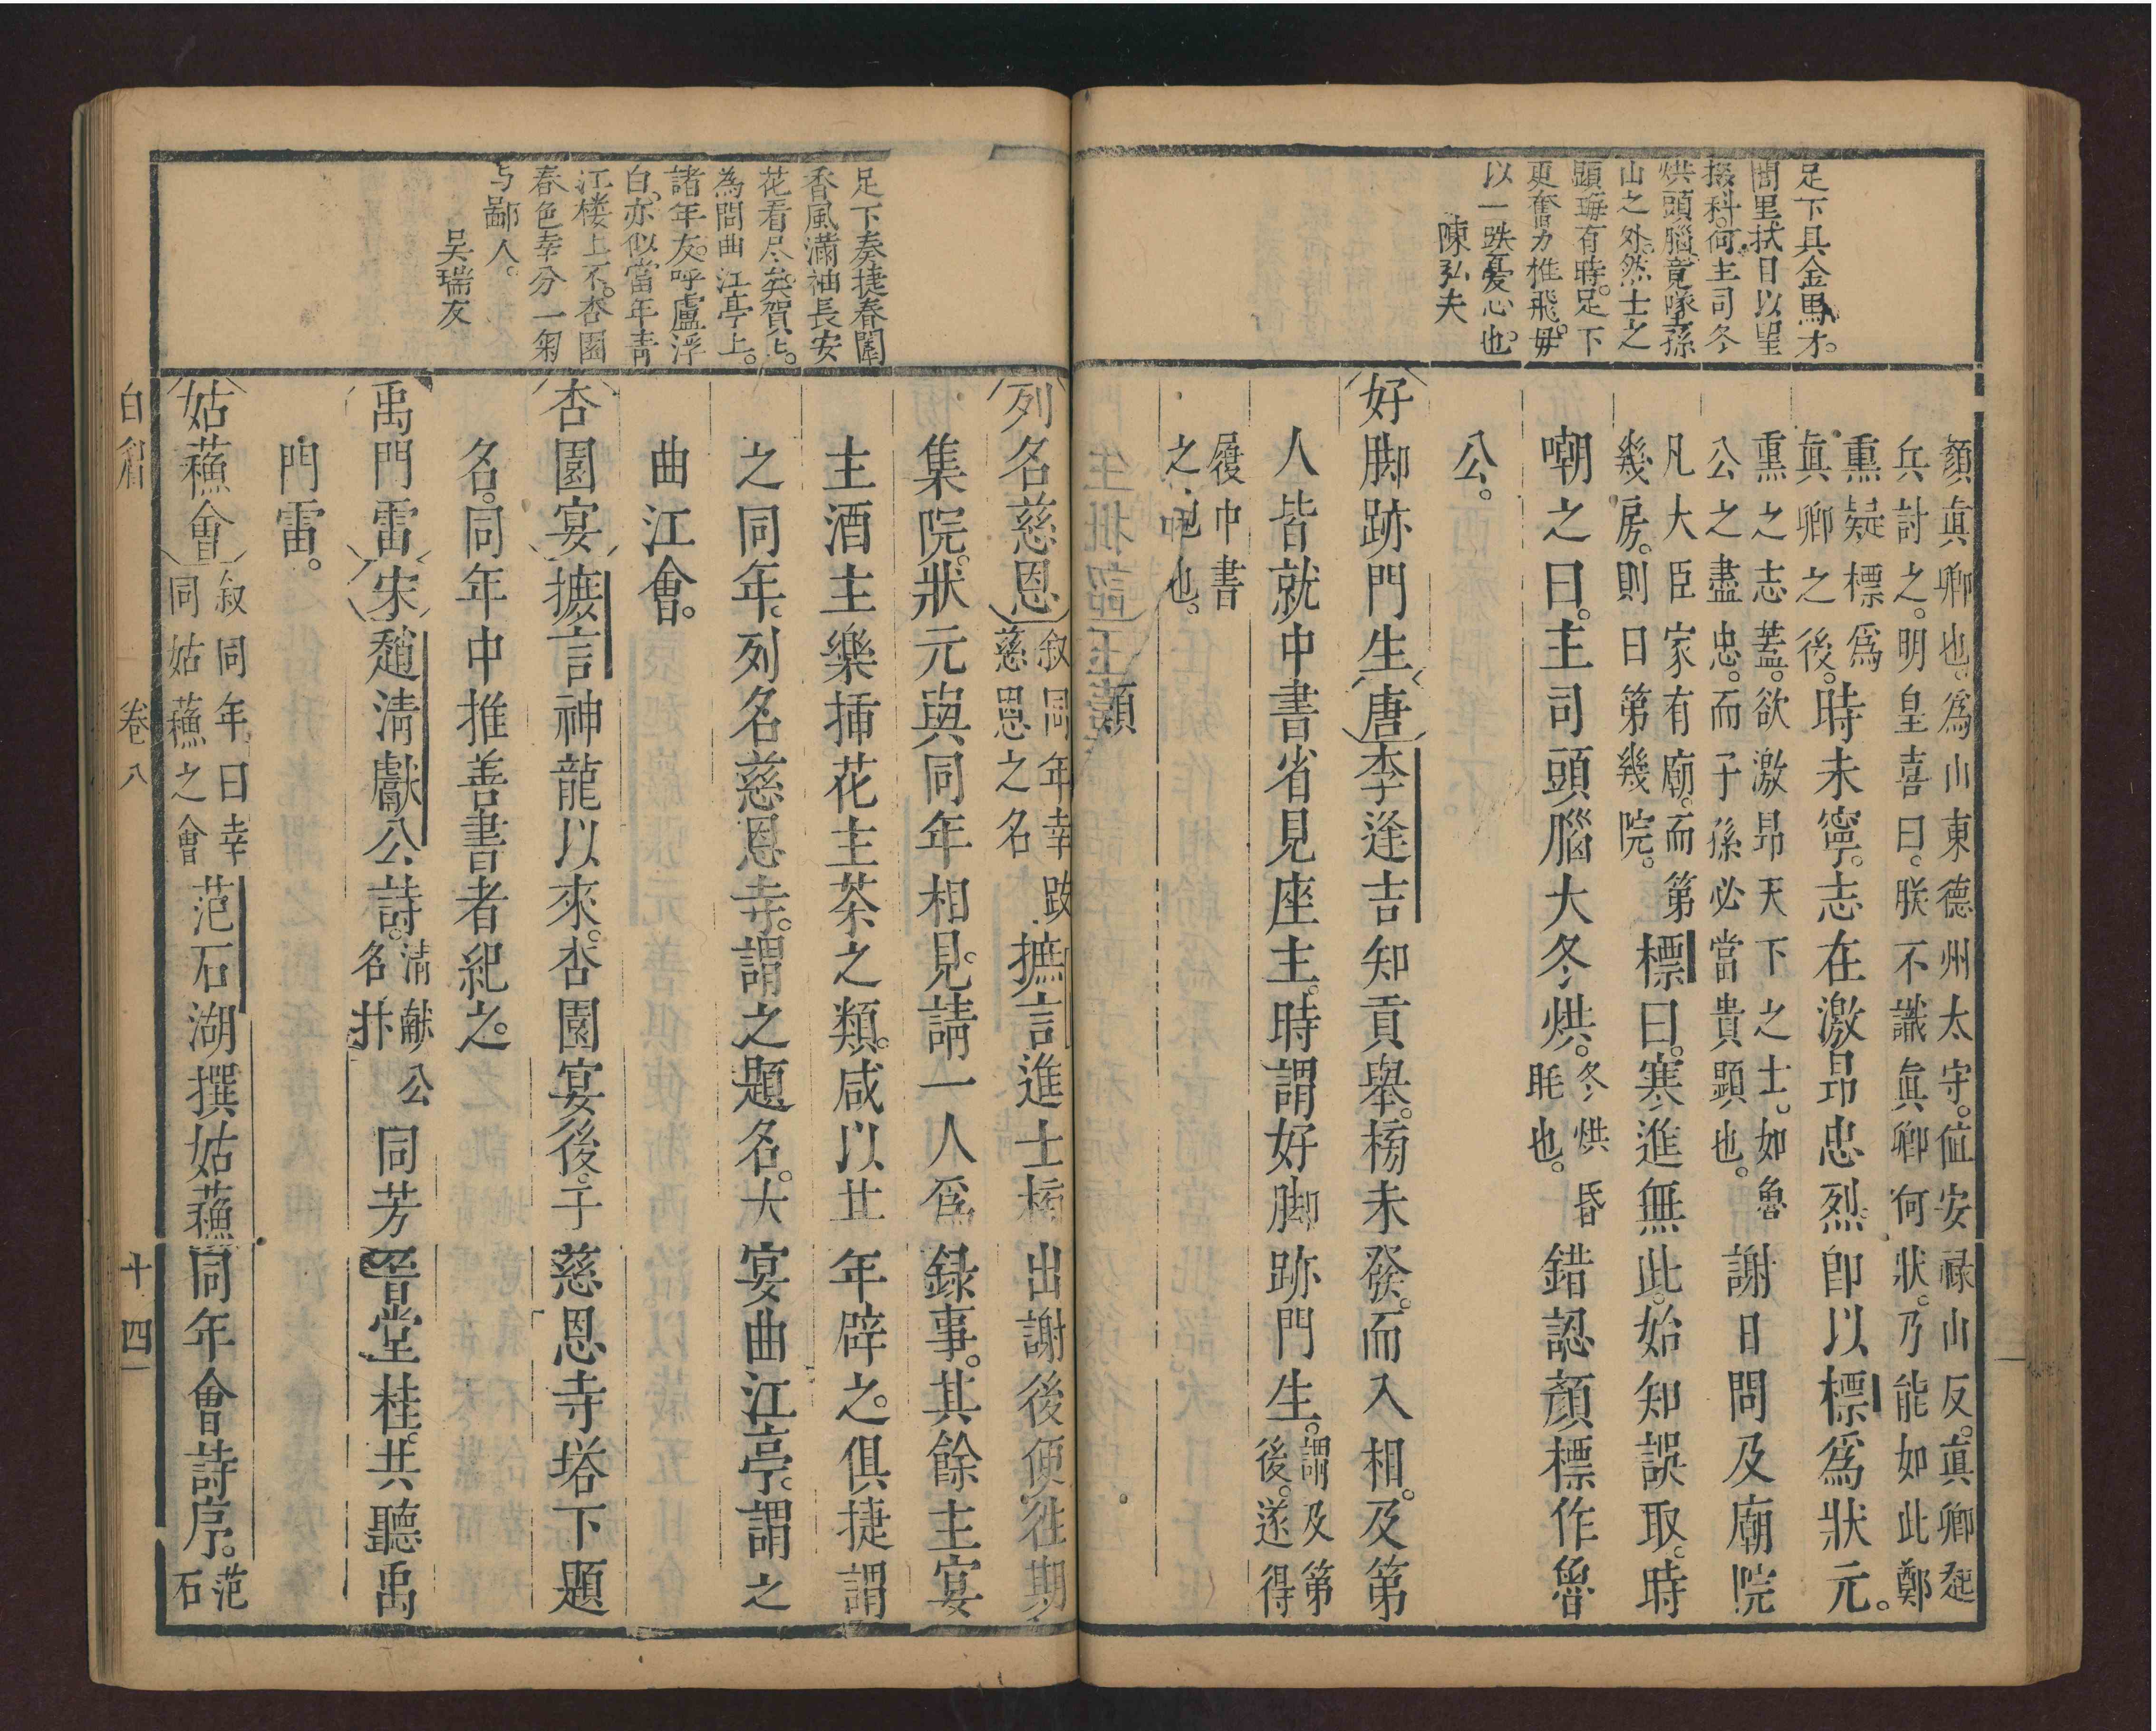 足下具金馬才。
閭里拭目以望
掇科。何主司冬
烘頭腦。竟墜孫
山之外。然士之
顕晦有時。足下
更奮力椎飛。毋
以一跌憂心也。
陳弘夫
顏眞卿也。爲山東德州太守。値安禄山反。眞卿起
兵討之。明皇喜曰。朕不識眞卿何狀。乃能如此鄭
熏疑標爲
眞卿之後。時未寧。志在激昂忠烈。卽以標爲狀元。
熏之志蓋。欲激昂天下之士。如魯
公之盡忠。而子孫必當貴顕也。謝日問及廟院
凡大臣家有廟。而第
幾房。則曰第幾院。標曰。寒進無此。始知誤取。時
嘲之曰。主司頭腦大冬烘。冬烘昏眊也。錯認顏標作魯
公。
好脚跡門生 唐李逢吉知貢舉。榜未發。而入相。及第
人皆就中書省見座主。時謂好脚跡門生。謂及第後。遂得
履中書
之地也。
足下奏捷春闈
香風滿袖長安
花看尽矣。賀〻。
為問曲江亭上。
諸年友。呼盧浮
白。亦似當年青
江楼上不。杏園
春色幸分一匊
与鄙人。
吴瑞友
列名慈恩 叙同年幸跂
慈恩之名 摭言進士榜出謝後便往期
集院。狀元與同年相見。請一人爲録事。其餘主宴
主酒主樂揷花主茶之類。咸以其年辟之。俱捷謂
之同年。列名慈恩寺。謂之題名。大宴曲江亭。謂之
曲江會。
杏園宴 摭言神龍以來。杏園宴後。于慈恩寺塔下題
名。同年中推善書者紀之。
禹門雷 宋趙清獻公詩。清献公名抃 同芳晋堂桂。共聽禹
門雷。
姑蘓會 叙同年曰幸
同姑蘓之會 范石湖撰姑蘓同年會詩序。范石
白眉 卷八 十四